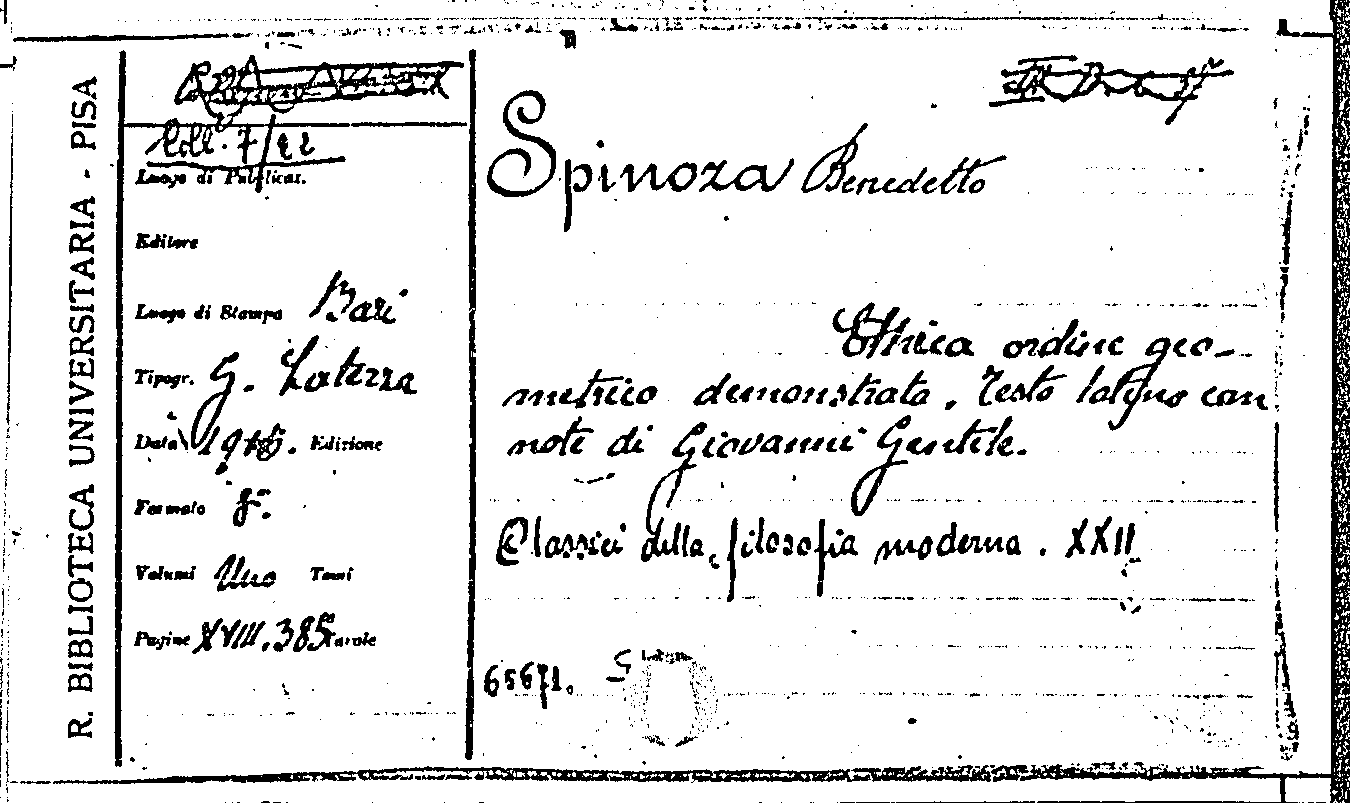 R. BIBLIOTECA UNIVERSITARIA - PISA
Coll. 7/22
Luogo di Pubblicaz.
Editore
Luogo di Stampa Bari
Tipogr. G. Laterza
Data 1915. Edizione
Formato 8°.
Volumi Uno Tomi
Pagine XVIII. 385 Tavole
Spinoza Benedetto
Ethica ordine geo-
metrico demonstrata. Testo latino con
note di Giovanni Gentile.
Classici della filosofia moderna. XXII
65671.